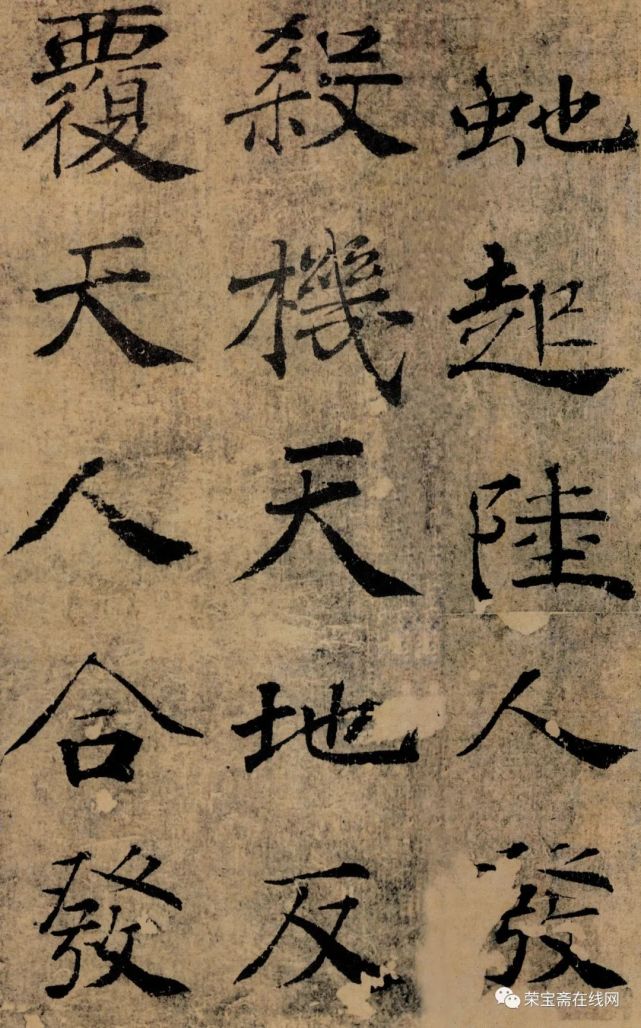 虵起陸人發
殺機天地反
覆天人合發
荣宝斋在线网